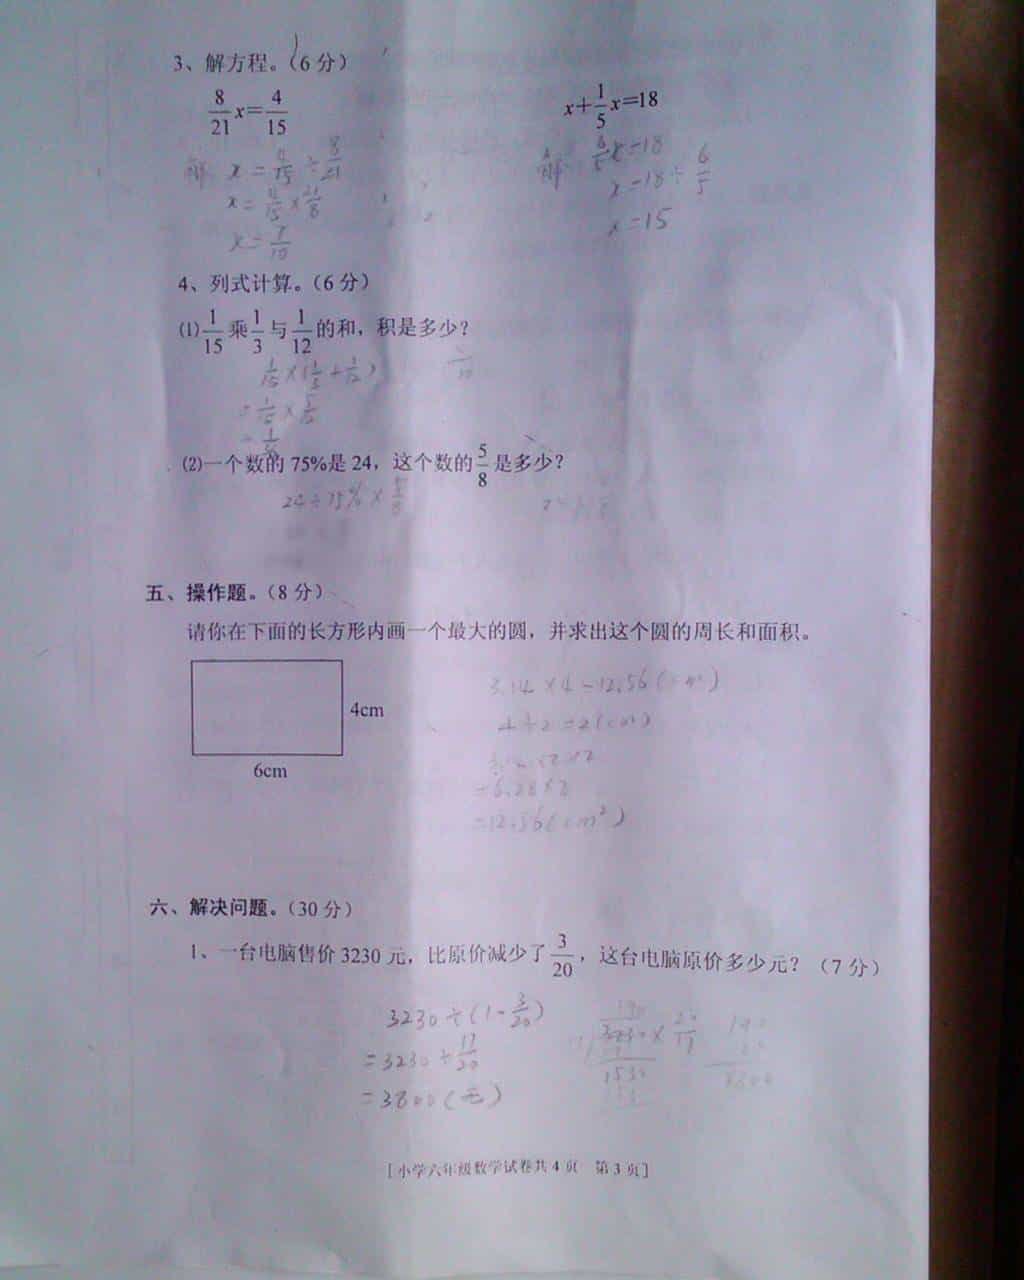 3、解方程。(6分)
8/21 x=4/15
x+1/5 x=18
解 x=4/15÷8/21
x=4/15×21/8
x=7/10
解 6/5 x=18
x=18÷6/5
x=15
4、列式计算。(6分)
⑴1/15乘1/3与1/12的和，积是多少?
1/15×(1/3+1/12)
⑵一个数的75%是24，这个数的5/8是多少?
24÷75%×5/8
五、操作题。(8分)
请你在下面的长方形内画一个最大的圆，并求出这个圆的周长和面积。
4cm
6cm
3.14×4=12.56(cm)
4÷2=2(cm)
3.14×2×2
=6.28×2
=12.56(cm²)
六、解决问题。(30分)
1、一台电脑售价3230元，比原价减少了3/20，这台电脑原价多少元?(7分)
3230÷(1-3/20)
=3230÷17/20
=3800(元)
190
3230×20/17
1530
[小学六年级数学试卷共4页 第3页]